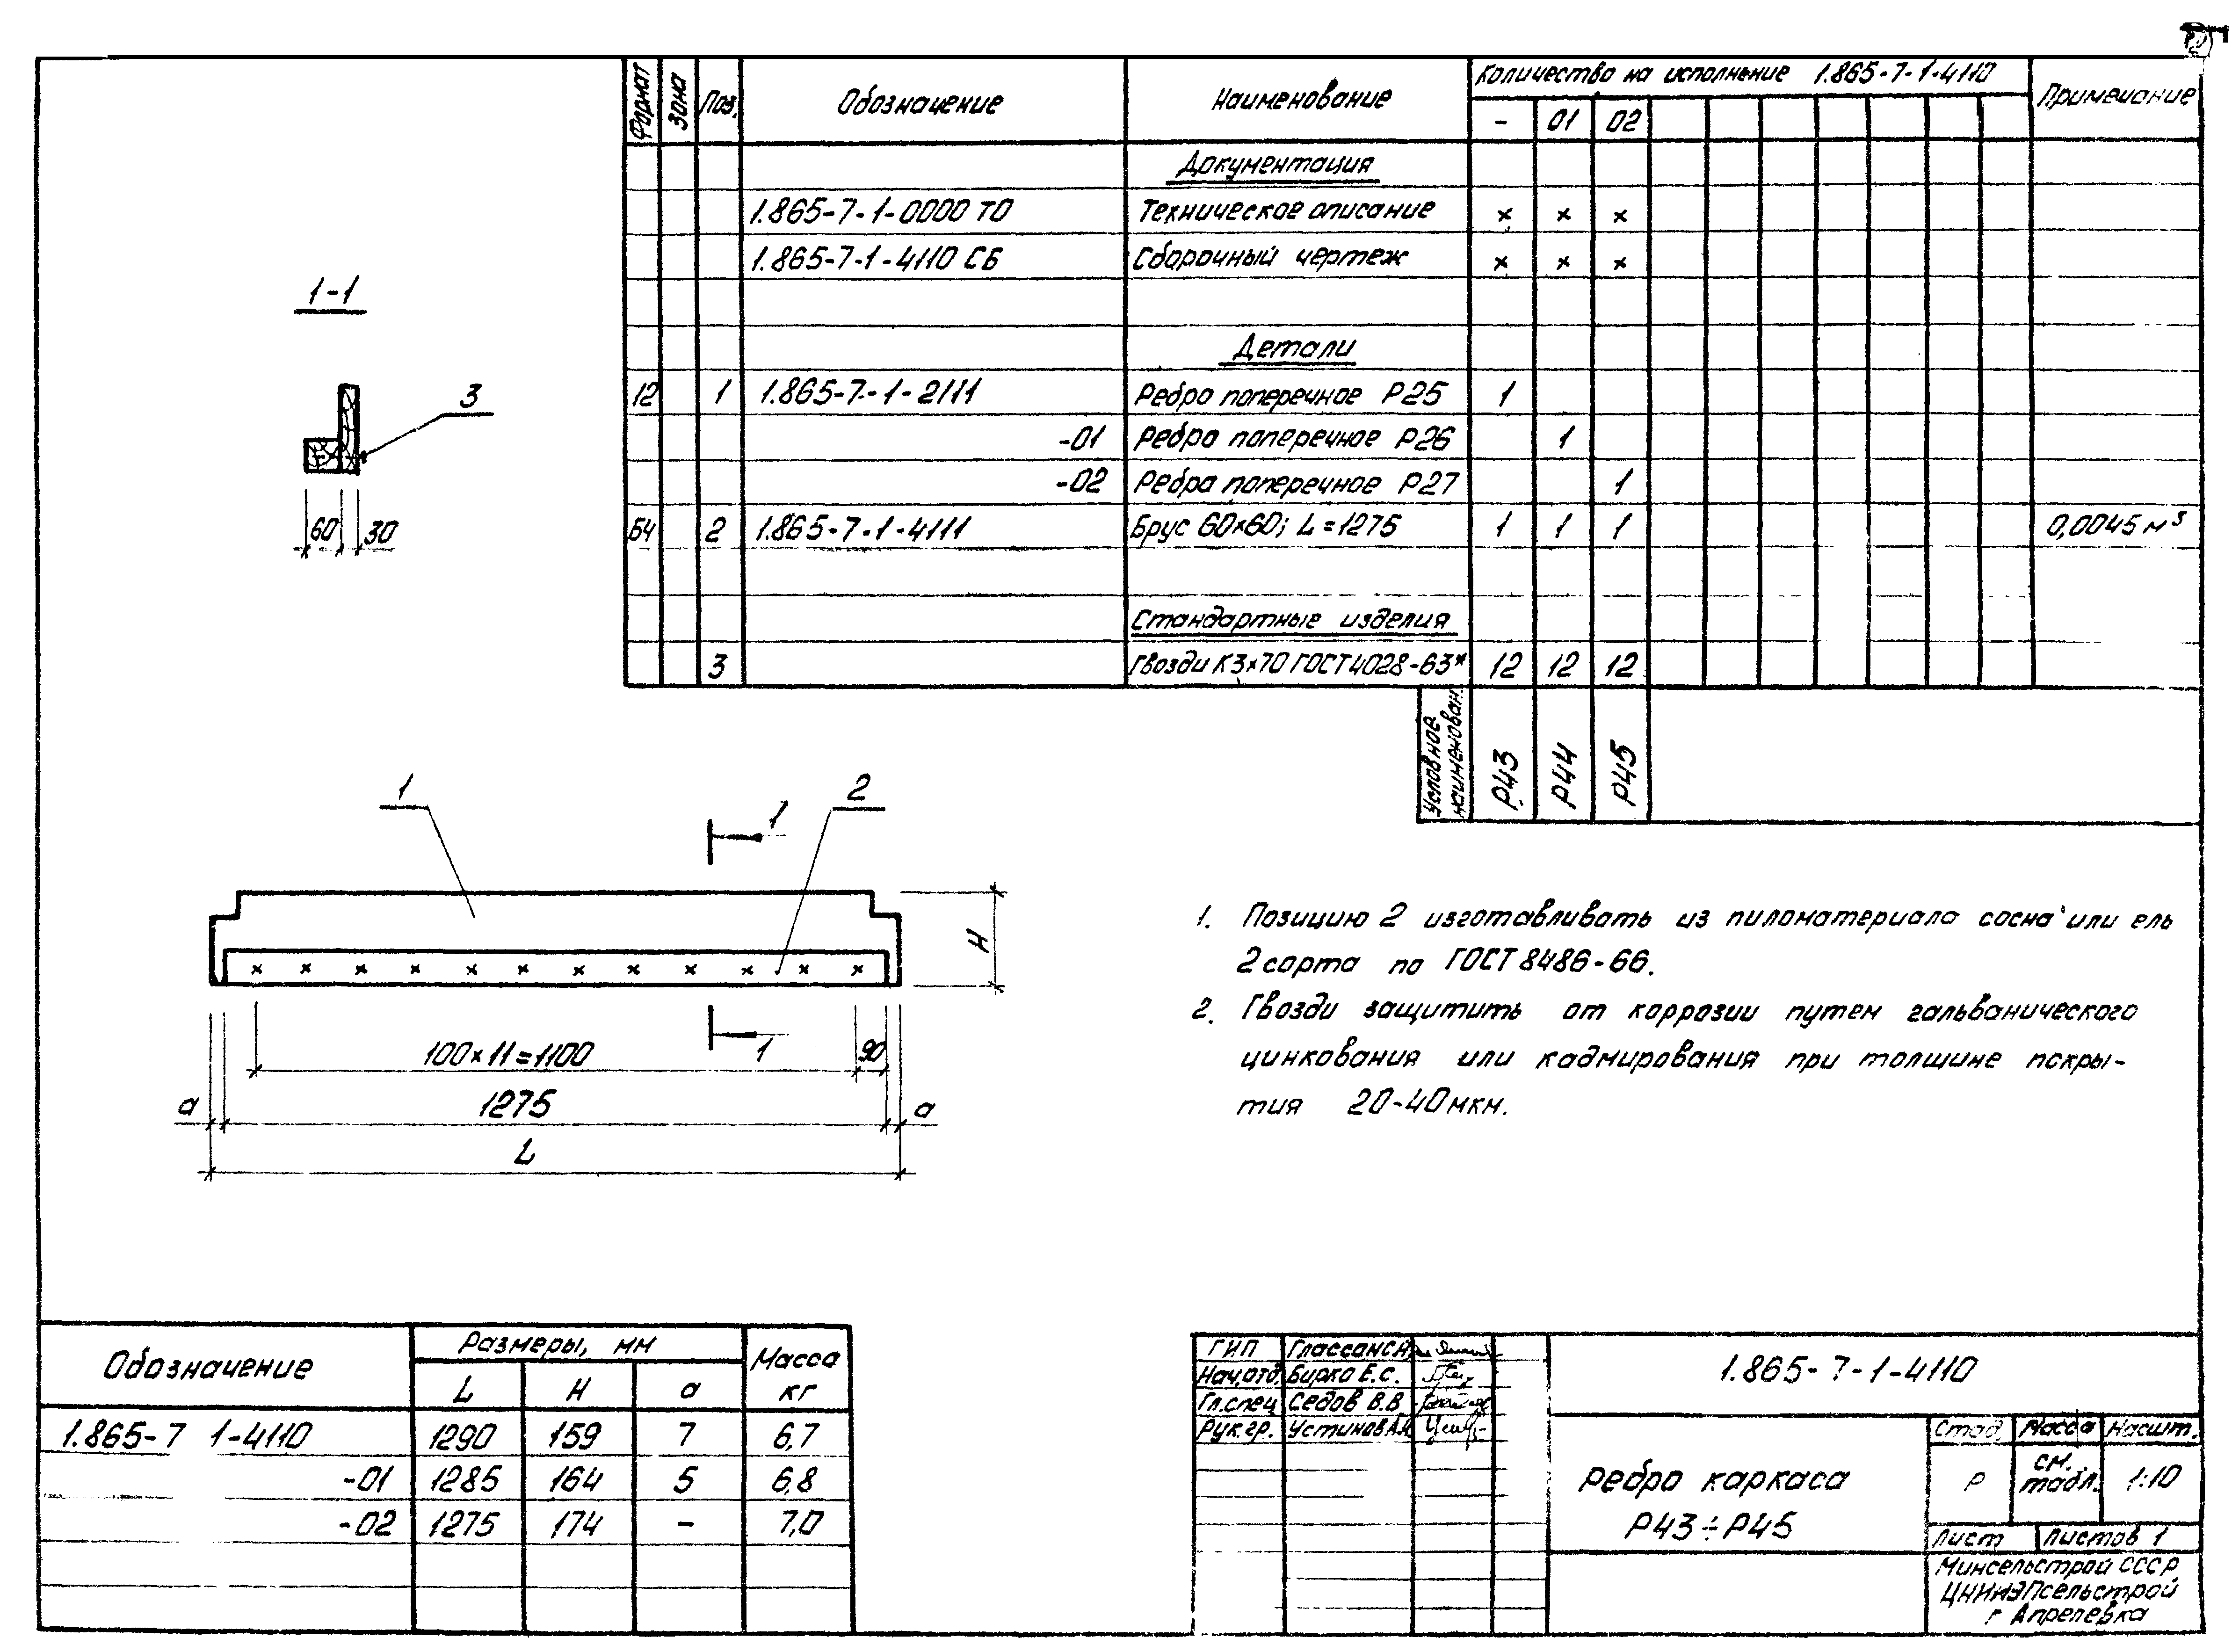 Формат Зона Поз. Обозначение Наименование Количество на исполнение 1.865-7-1-4110 Примечание
- 01 02
Документация
1.865-7-1-0000 ТО Техническое описание x x x
1.865-7-1-4110 СБ Сборочный чертеж x x x
Детали
12 1 1.865-7-1-2111 Ребро поперечное Р25 1
-01 Ребро поперечное Р26 1
-02 Ребро поперечное Р27 1
Б4 2 1.865-7-1-4111 Брус 60x60; L=1275 1 1 1 0,0045 м³
Стандартные изделия
3 Гвозди К3x70 ГОСТ 4028-63* 12 12 12
Условное наименован. Р43 Р44 Р45
1-1
3
60 30
1
2
1
H
1
100x11=1100
90
а 1275 а
L
1. Позицию 2 изготавливать из пиломатериала сосна или ель
2 сорта по ГОСТ 8486-66.
2. Гвозди защитить от коррозии путем гальванического
цинкования или кадмирования при толщине покры-
тия 20-40мкм.
Обозначение Размеры, мм Масса кг
L H а
1.865-7 1-4110 1290 159 7 6,7
-01 1285 164 5 6,8
-02 1275 174 - 7,0
ГИП
Нач.отд. Бирко Е.С.
Гл.спец Седов В.В
Рук.гр. Устинов А.И.
1.865-7-1-4110
Ребро каркаса
Р43÷Р45
Стад. Масса Масшт.
Р см. табл. 1:10
Лист Листов 1
Минсельстрой СССР
ЦНИИЭПсельстрой
г Апрелевка